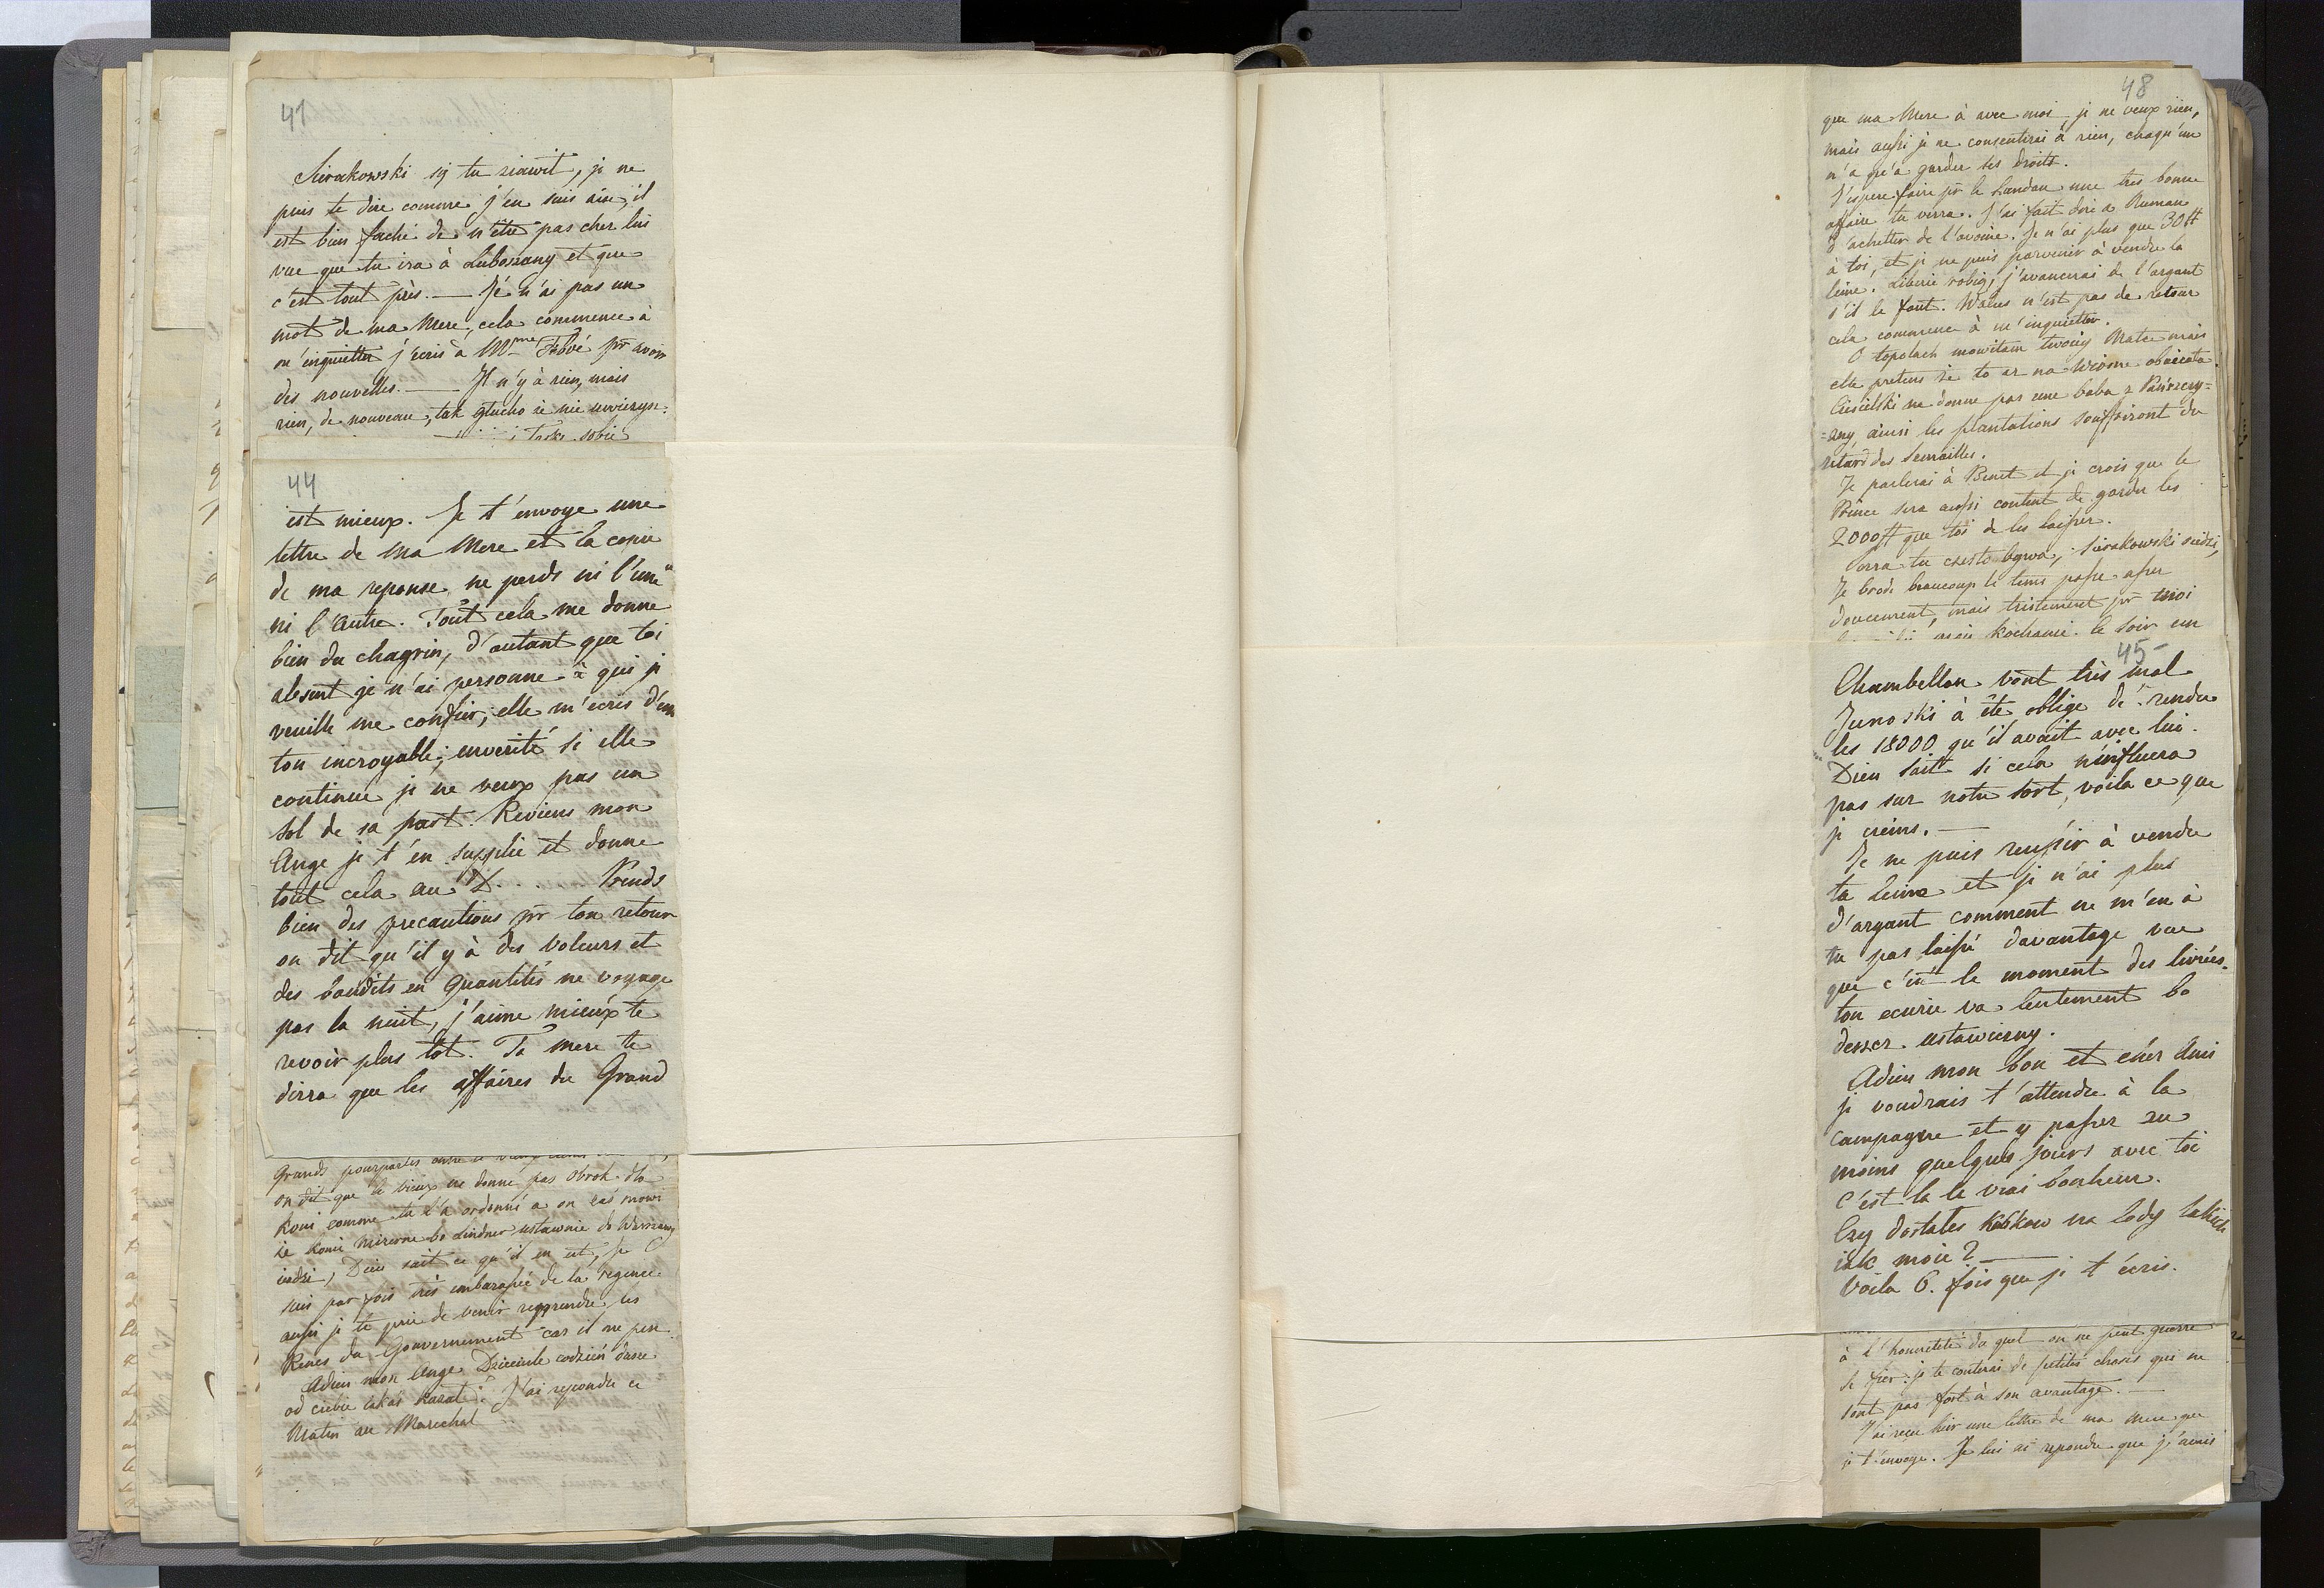 41
Sierakowski się tu ziawit, je ne
puis te dire comme j'en suis aise, il
est bien faché de n'être pas cher lui
vue que tu ira à Luboszany et que
c'est tout près. — Je n'ai pas un
mot de ma Mere, cela commence à
m'inquietter j'ecris à Mme pr avoir
des nouvelles. — Il n'y à rien, mais
rien, de nouveau, tak głucho że nie uwierzysz.
sobie
44
est mieux. Je t'envoye une
lettre de ma Mere et la copie
de ma reponse ne perds ni l'une
ni l'autre. Tout cela me donne
bien du chagrin, d'autant que toi
absent je n'ai personne à qui je
veuille me confier; elle m'ecris d'un
ton incroyable; enverité si elle
continue je ne veux pas un
sol de sa part. Reviens mon
Ange je t'en supplie et donne
tout cela au D.... Prends
bien des precautions pr ton retour
on dit qu'il y à des voleurs et
des bandits en quantités ne voyage
pas la nuit, j'aime mieux te
revoir plus tôt. Ta mere te
dirra que les affaires du Grand
Grands pourparlés
on dit que le vieux ne donne pas obrok dla
koni comme tu l'a ordonné a on zaś mowi
że konie mizerne bo Lindner ustawnie do Warszawy
iedzi, Dieu sait ce qu'il en est, je
suis par fois très embarassée de la regence
aussi je te prie de venir repprendre les
Renes du Gouvernement car il me pese.
Adieu mon Ange. Dziecinie codzień dasse
od ciebie iakaś kazał? J'ai repondu ce
Matin au Marechal
48
que ma Mere à avec moi, je ne veux rien,
mais aussi je ne consentirai à rien, chaqu'un
n'a qu'à garder ses droits.
J'espere faire pr le Landau une tres bonne
affaire tu verra. J'ai fait dire a Ruman
d'achetter de l'avoine. Je n'ai plus que 30#
à toi, et je ne puis parvenir à vendre la
leine. Liberie robią, j'avancerai de l'argant
s'il le faut. Walus n'est pas de retour
cela commence à m'inquietter.
O topolach mowiłam twoiey Matce mais
elle pretens że to aż na Wiosne obiecała.
Ciesielski ne donne pas une baba z
any, ainsi les plantations souffriront du
retard des semailles.
Je parlerai à Benet et je crois que le
Prince sera aussi content de garder les
2000# que toi de les laisser.
Corra tu często bywa, Sierakowski siedzi,
Je brode beaucoup le tems passe assez
doucement, mais tristement pr moi
moie kochanie. le soir une
45
Chambellan vont très mal
Junoski à été obligé de rendre
les 18000 qu'il avait avec lui.
Dieu sait si cela n'influera
pas sur notre sort, voila ce que
je creins. —
Je ne puis reussir à vendre
ta Leine et je n'ai plus
d'argant comment ne m'en à
tu pas laissé davantage vue
que c'est le moment des livrées.
ton ecurie va lentement bo
deszcz ustawiczny.
Adieu mon bon et cher Ami
je voudrais t'attendre à la
campagne et y passer au
moins quelques jours avec toi
c'est la le vrai bonheur.
Czy dostałeś kubkow na lody takich
iak moie? —
Voila 6. fois que je t'ecris.
à l'honneteté du quel on ne peut guerre
se fier. je te conterai de petites choses qui ne
sont pas fort à son avantage. —
J'ai recu hier une lettre de ma mere que
je t'envoye. Je lui ai repondu que j'aimis